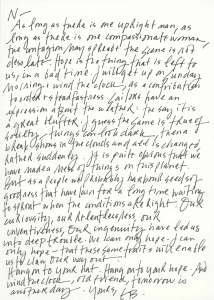 N –
As long as there is one upright man, as
long as there is one compassionate woman,
the contagion may spread & the scene is not
desolate. Hope is the thing that is left to
us, in a bad time. I will get up on Sunday
morning & wind the clock, as a contribution
to order & steadfastness. Sailors have an
expression about the weather: they say, it is
a great bluffer. I guess the same is true of
society – things can look dark, then a
break shows in the clouds and all is changed,
rather suddenly. It is quite obvious that we
have made a mess of things on this planet.
But as a people we probably harbor seeds of
goodness that have lain for a long time waiting
to sprout when the conditions are right. Our
curiosity, our relentlessness, our
inventiveness, our ingenuity have led us
into deep trouble. We can only hope
that these same traits will enable
us to claw our way out.
Hang on to your hat. Hang on to your hope. And
wind the clock, old friend, tomorrow is
another day. Yours,
EB.